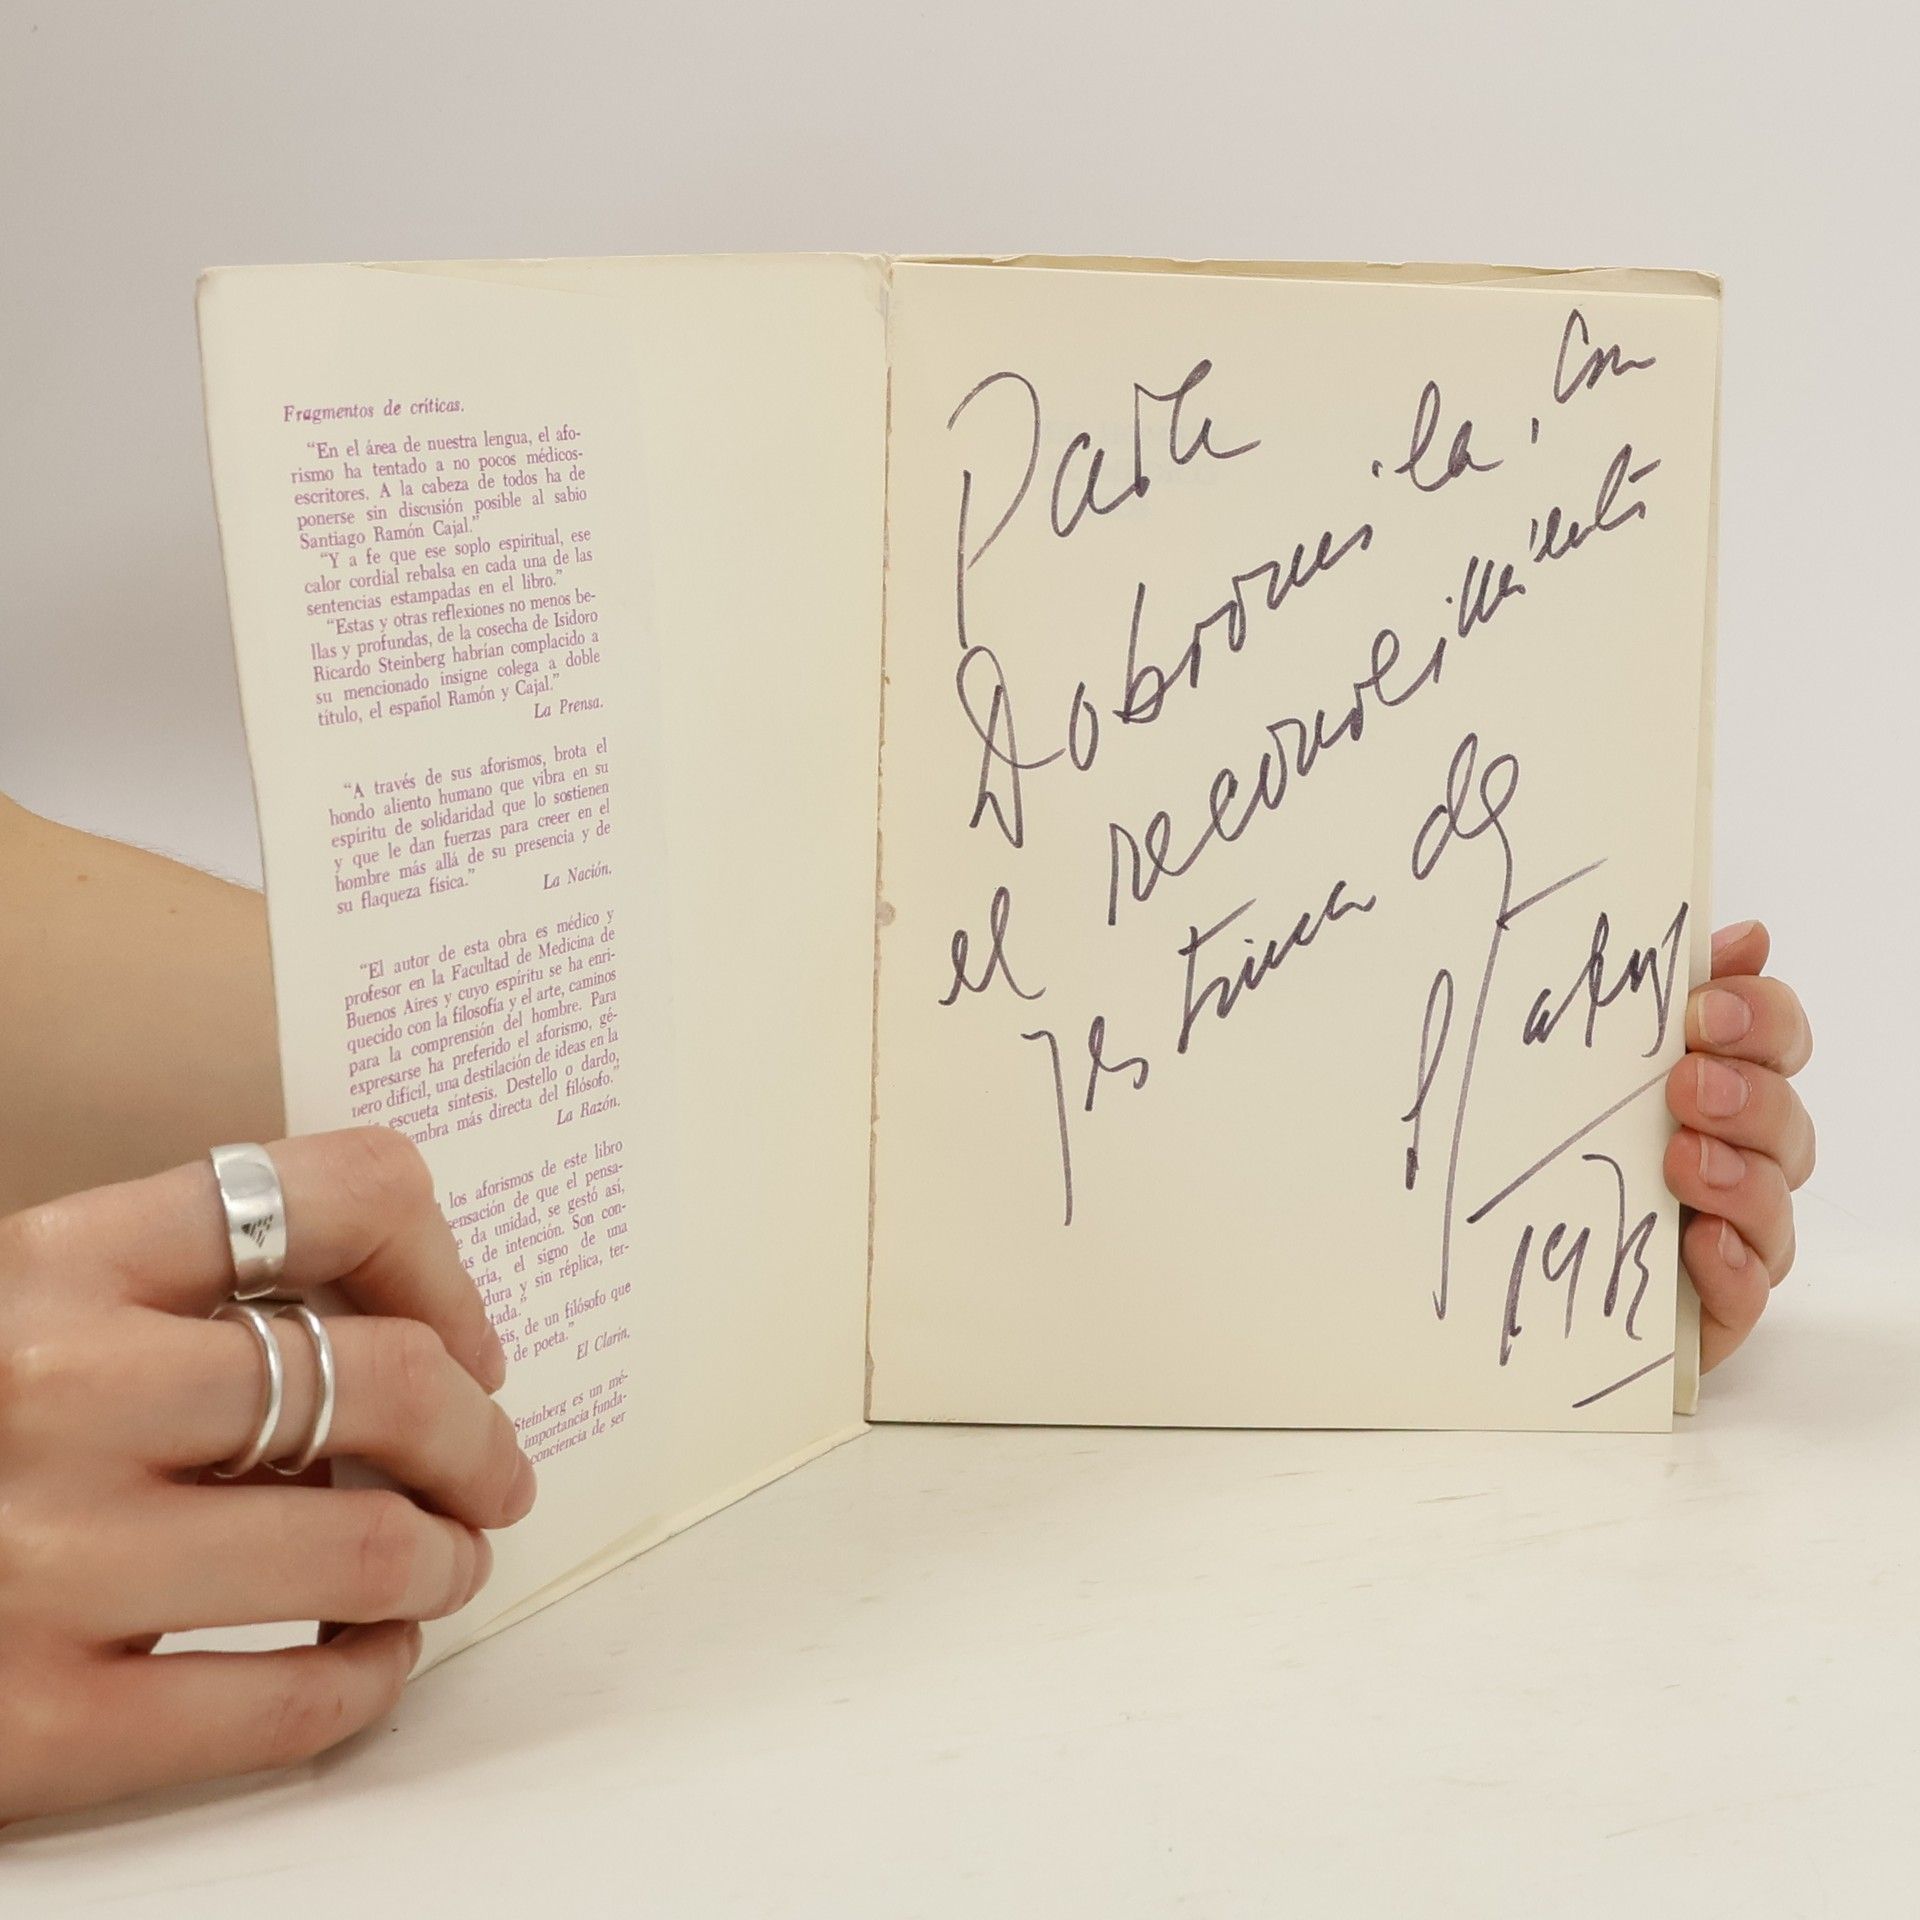 Fragmentos de críticas.
“En el área de nuestra lengua, el afo-
rismo ha tentado a no pocos médicos-
escritores. A la cabeza de todos ha de
ponerse sin discusión posible al sabio
Santiago Ramón Cajal.”
“Y a fe que ese soplo espiritual, ese
calor cordial rebalsa en cada una de las
sentencias estampadas en el libro.”
“Estas y otras reflexiones no menos be-
llas y profundas, de la cosecha de Isidoro
Ricardo Steinberg habrían complacido a
su mencionado insigne colega a doble
título, el español Ramón y Cajal.”
La Prensa.
“A través de sus aforismos, brota el
hondo aliento humano que vibra en su
espíritu de solidaridad que lo sostienen
y que le dan fuerzas para creer en el
hombre más allá de su presencia y de
su flaqueza física.”
La Nación.
“El autor de esta obra es médico y
profesor en la Facultad de Medicina de
Buenos Aires y cuyo espíritu se ha enri-
quecido con la filosofía y el arte, caminos
para la comprensión del hombre. Para
expresarse ha preferido el aforismo, gé-
nero difícil, una destilación de ideas en la
escueta síntesis. Destello o dardo,
embra más directa del filósofo.”
La Razón.
los aforismos de este libro
sensación de que el pensa-
da unidad, se gestó así,
de intención. Son con-
uría, el signo de una
dura y sin réplica, ter-
tada.”
sis, de un filósofo que
de poeta.”
El Clarín.
Steinberg es un mé-
importancia funda-
conciencia de ser
Para
la, con
el reconocimiento
y estima de